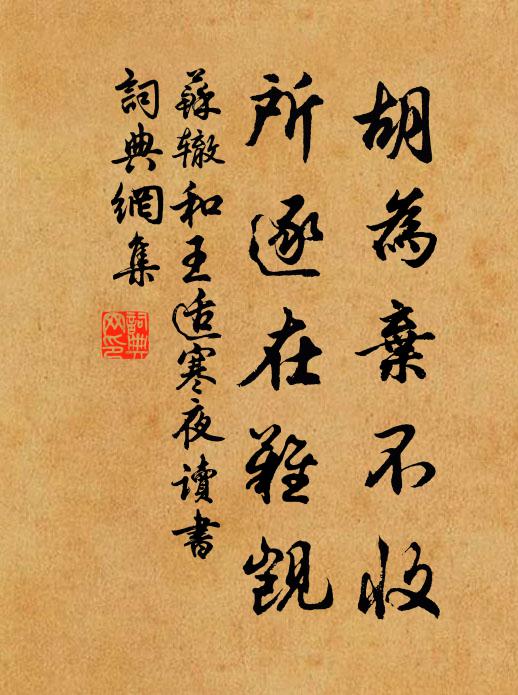 胡為棄不收
所逐在難覬
蘇辙和王适寒夜讀書
詞典網集
詞典網印